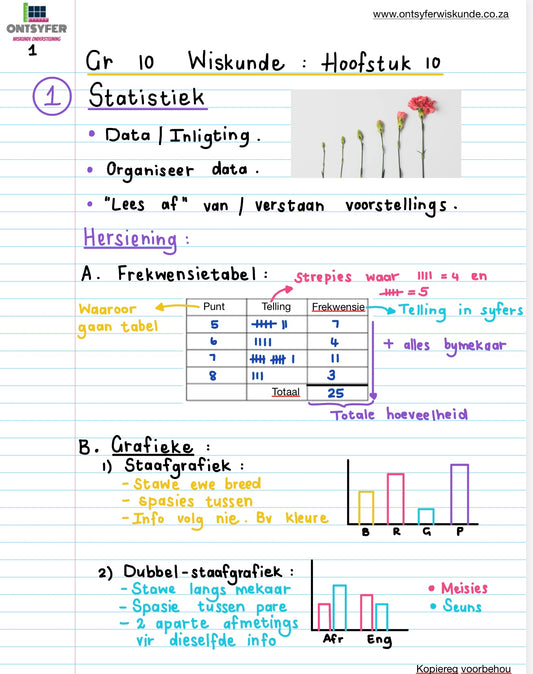 www.ontsyferwiskunde.co.za
ONTSYFER
WISKUNDE ONDERSTEUNING
1
Gr 10 Wiskunde : Hoofstuk 10
1 Statistiek
• Data / Inligting.
• Organiseer data.
• "Lees af" van / verstaan voorstellings.
Hersiening :
A. Frekwensietabel :
Strepies waar IIII = 4 en
IIII = 5
Waaroor
gaan tabel
Punt Telling Frekwensie
Telling in syfers
5 IIII II 7
6 IIII 4
7 IIII IIII I 11
8 III 3
Totaal 25
+ alles bymekaar
Totale hoeveelheid
B. Grafieke :
1) Staafgrafiek :
- Stawe ewe breed
- Spasies tussen
- Info volg nie. Bv kleure
B R G P
2) Dubbel-staafgrafiek :
- Stawe langs mekaar
- Spasie tussen pare
- 2 aparte afmetings
vir dieselfde info
Afr Eng
• Meisies
• Seuns
Kopiereg voorbehou